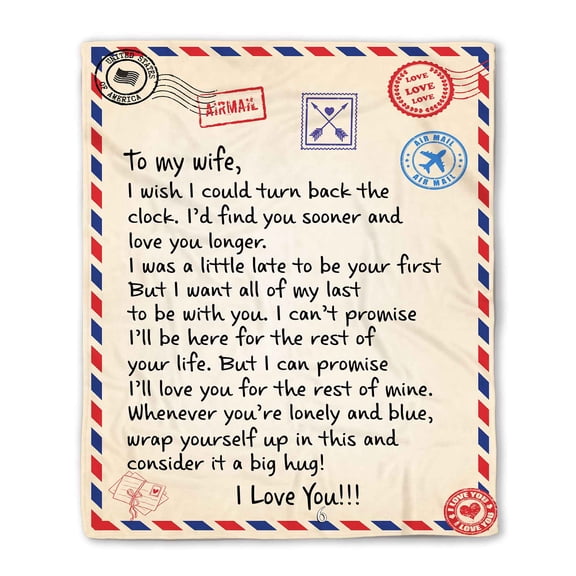 UNITED STATES
OF AMERICA
AIRMAIL
LOVE
LOVE
LOVE
AIR MAIL
AIR MAIL
To my wife,
I wish I could turn back the
clock. I'd find you sooner and
love you longer.
I was a little late to be your first
But I want all of my last
to be with you. I can't promise
I'll be here for the rest of
your life. But I can promise
I'll love you for the rest of mine.
Whenever you're lonely and blue,
wrap yourself up in this and
consider it a big hug!
I Love You!!!
6
I LOVE YOU
I LOVE YOU